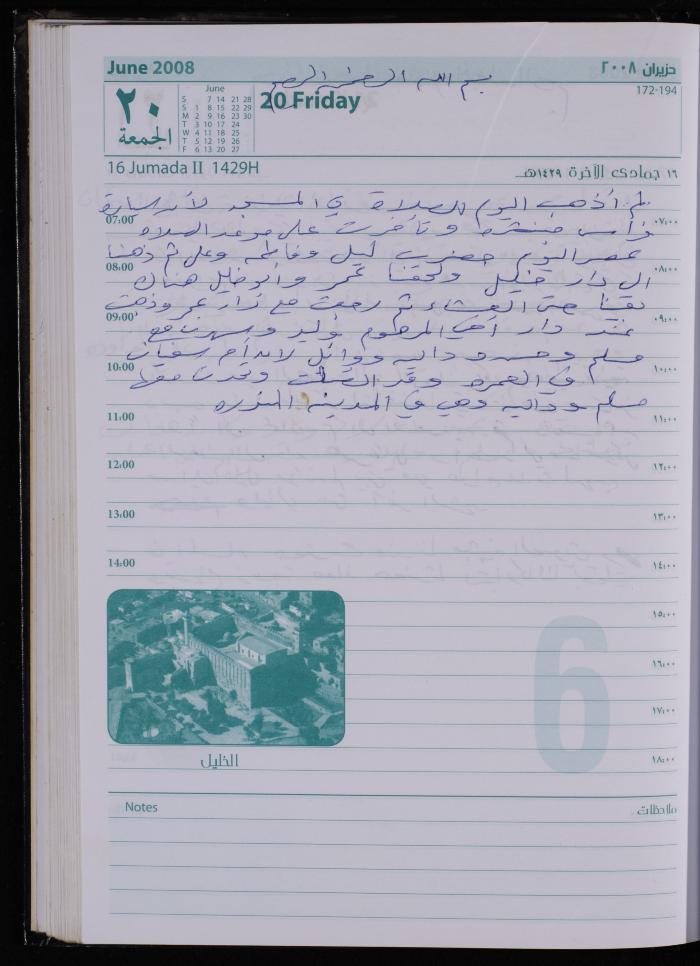 June 2008
حزيران ٢٠٠٨
بسم الله الرحمن الرحيم
172-194
20 Friday
٢٠
الجمعة
June
S 7 14 21 28
S 1 8 15 22 29
M 2 9 16 23 30
T 3 10 17 24
W 4 11 18 25
T 5 12 19 26
F 6 13 20 27
16 Jumada II 1429H
١٦ جمادى الآخرة ١٤٢٩هـ
لم أذهب اليوم للصلاة في المسجد لأن سيارة
فراس وتأخرت على موعد الصلاة
07:00 ٠٧:٠٠
عصر اليوم حضرت ليلى وفاطمه وعلي ثم ذهبنا
08:00 ٠٨:٠٠
الى دار خليل ولحقنا عمر وابو خليل هناك
بقينا حتى العشاء ثم رجعت مع نزار عمر وذهبت
09:00 ٠٩:٠٠
عند دار أخي المرحوم وليد وسهرت مع
مسلم وداليه ووائل لان أم سفيان
10:00 ١٠:٠٠
في العمره وقد اتصلت وتحدث معها
مسلم وداليه وهي في المدينه المنوره
11:00 ١١:٠٠
12:00
13:00 ١٣:٠٠
14:00 ١٤:٠٠
١٥:٠٠
١٦:٠٠
١٧:٠٠
١٨:٠٠
6
الخليل
Notes
ملاحظات